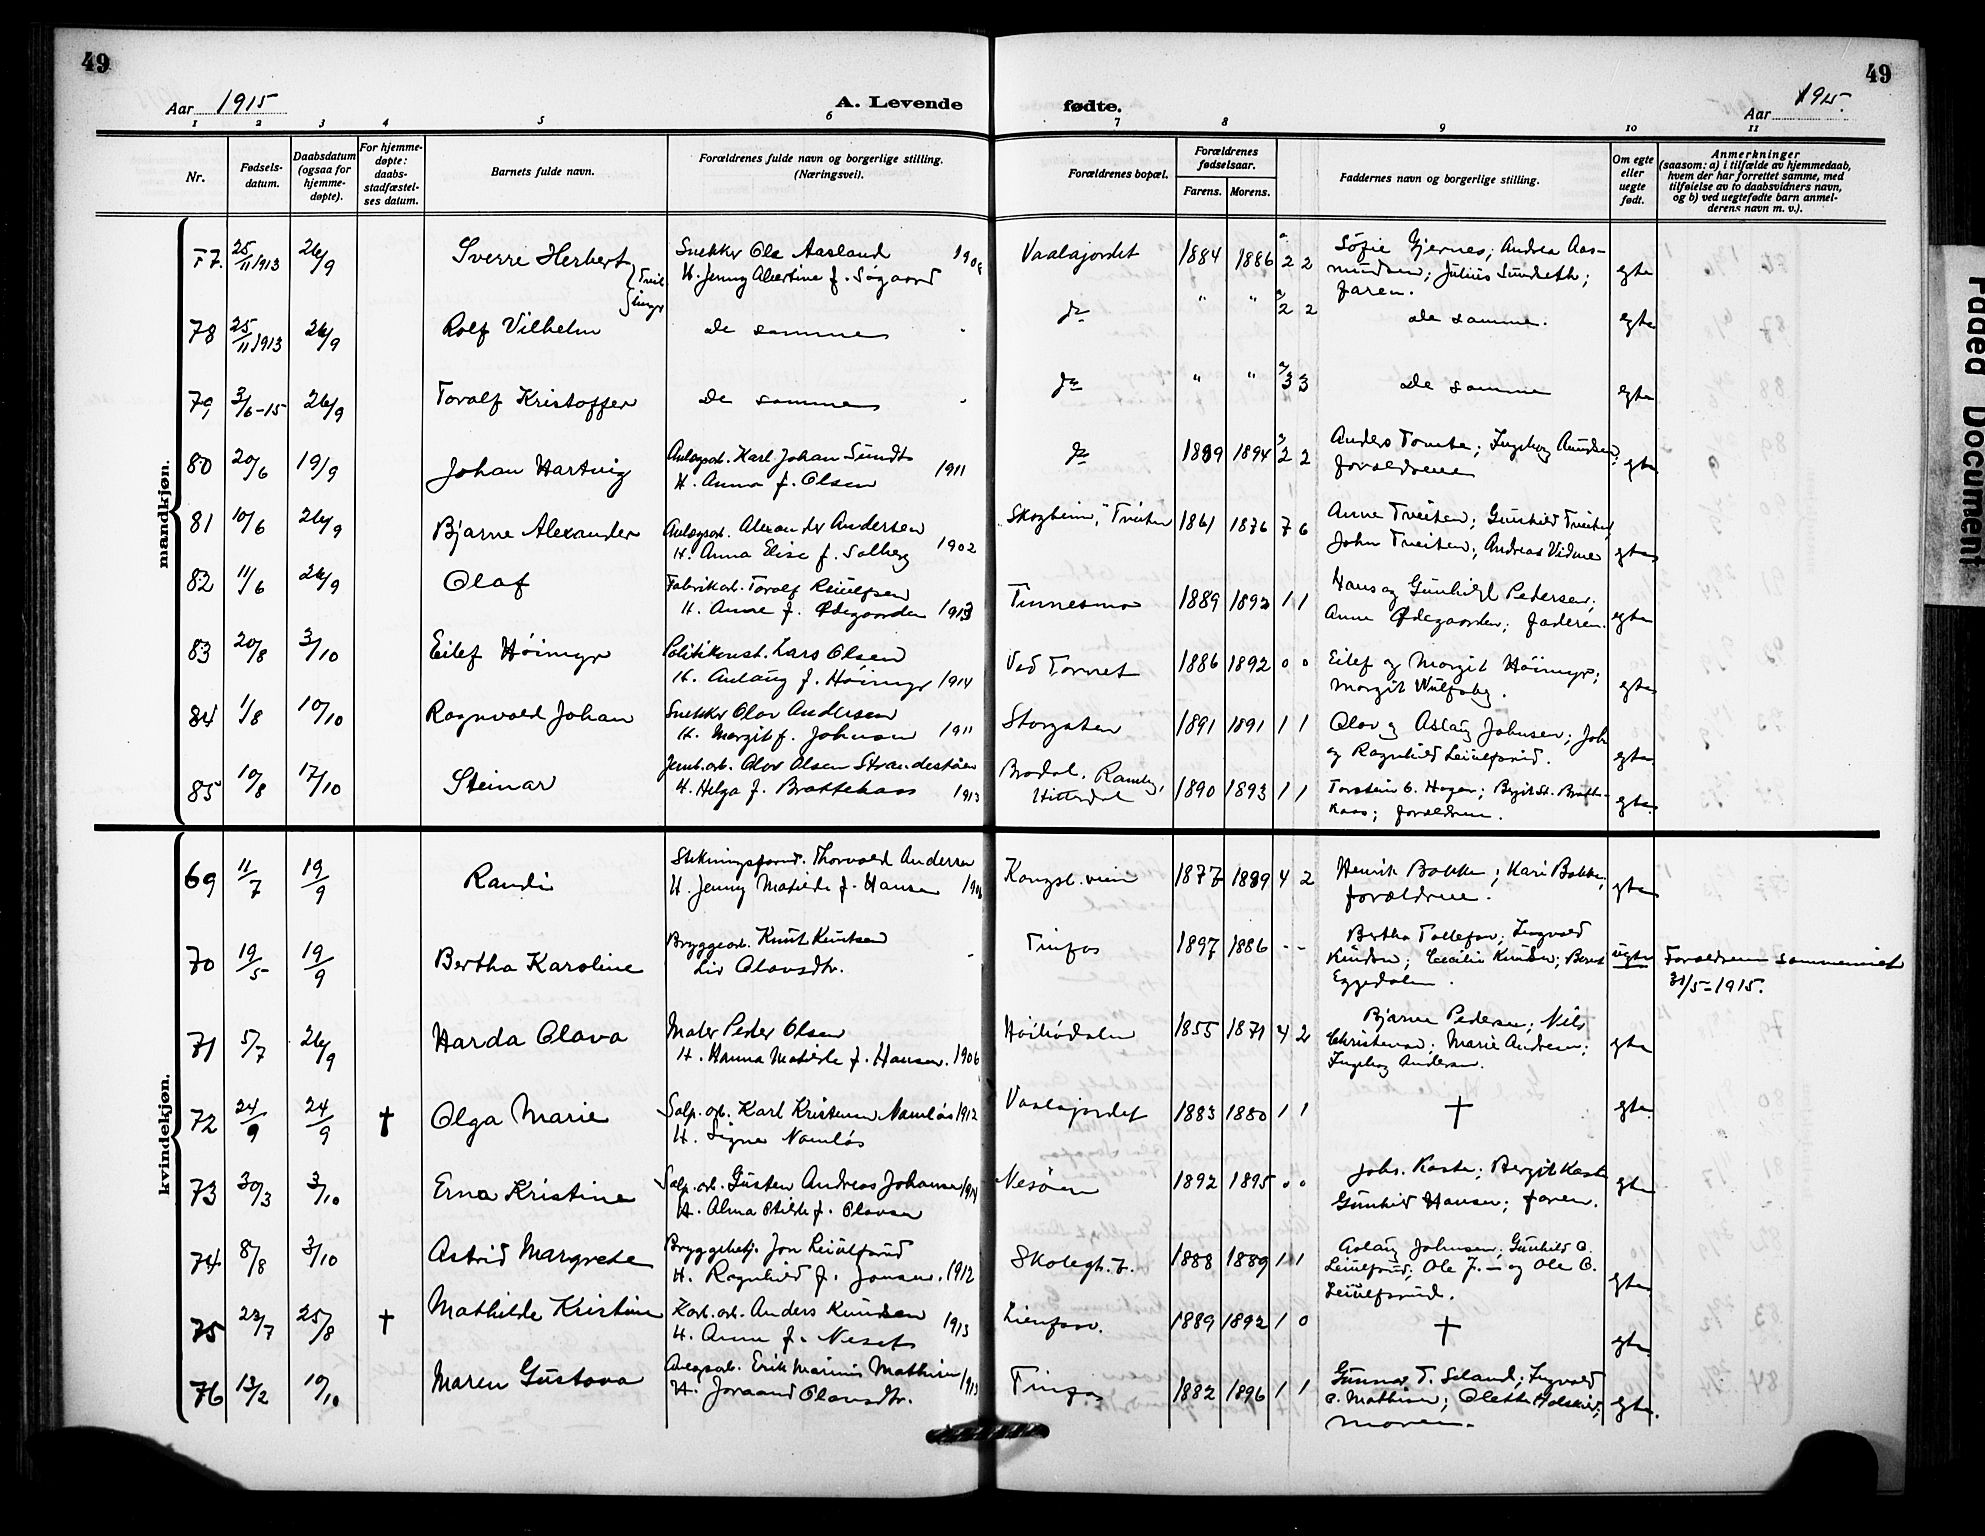 49
49
Aar 1915
A. Levende
fødte.
Aar 1915.
1 2 3 4 5 6 7 8 9 10 11
Nr.
Fødsels-
datum.
Daabsdatum
(ogsaa for
hjemme-
døpte).
For hjemme-
døpte:
daabs-
stadfæstel-
ses datum.
Barnets fulde navn.
Forældrenes fulde navn og borgerlige stilling.
(Næringsvei).
Forældrenes bopæl.
Forældrenes
fødselsaar.
Farens. Morens.
Faddernes navn og borgerlige stilling.
Om egte
eller
uegte
født.
Anmerkninger
(saasom: a) i tilfælde av hjemmedaab,
hvem der har forrettet samme, med
tilføielse av to daabsvidners navn,
og b) ved uegtefødte barn anmel-
derens navn m. v.).
mandkjøn.
77. 25/11 1913 26/9 Sverre Herbert Snekker Ole Aasland Vaalajordet 1884 1886 2 2 Søfie Gjernes; Andrea Aas-
H. Jenny Albertine f. Søgaard mundsen; Julius Sundseth; egte
faren.
78 25/11 1913 26/9 Rolf Vilhelm De samme do " " 2 2 de samme. egte
79 3/6-15 26/9 Toralf Kristoffer De samme do " " 3 3 De samme egte
80 20/6 19/9 Johan Hartvig Anlægsarb. Karl Johan Sundt 1911 do 1889 1894 2 2 Anders Tomte; Ingeborg Amundsen; egte
H. Anna f. Olsen forældrene
81 10/6 26/9 Bjarne Alexander Anlægsarb. Alexander Andersen 1902 "Skogheim," Tveiten 1861 1876 7 6 Anne Tveiten; Gunhild Tveiten,
H. Anna Elise f. Solberg John Tveiten; Andreas Vidme egte
82 11/6 26/9 Olaf Fabrikarb. Toralf Reiulfsen 1913 Tinnesmo 1889 1892 1 1 Hans og Gunhild Pedersen;
H. Anne f. Ødegaarden Anne Ødegaarden; faderen. egte
83 20/8 3/10 Eilef Høimyr Politikonst. Lars Olsen Ved Torvet 1886 1892 0 0 Eilef og Margit Høimyr;
H. Aslaug f. Høimyr 1914 Margit Wulfsby. egte
84 1/8 10/10 Ragnvald Johan Snekker Olav Andersen Storgaten 1891 1891 1 1 Olav og Aslaug Johnsen; Joh.
H. Margit f. Johnsen 1911 og Ragnhild Leiulfsrud. egte
85 10/8 17/10 Steinar Jernb.arb. Olav Olsen Strandestøen Brodal. Ramberg, 1890 1893 1 1 Torstein O. Hagen; Birgit St. Bratte-
H. Helga f. Brattekaas 1913 Hitterdal kaas; forældrene. egte
kvindekjøn.
69 11/7 19/9 Randi Thorvald Andersen Kongsb.veien 1877 1889 4 2 Henrik Bakken; Kari Bakken; egte
H. Jenny Matilde f. Hansen forældrene.
70 19/5 19/9 Bertha Karoline Bryggearb. Knut Knutsen Tinfos 1897 1886 - - Bertha Tollefsen; Ingvald
Liv Olavsdtr. Knudsen; Cecilie Knudsen; Berit uegte Forældrene sammenviet
Eggedalen. 30/5-1915.
71 5/7 26/9 Harda Olava Maler Peder Olsen Høibødalen 1855 1871 4 2 Bjarne Pedersen; Nils
H. Hanna Matilde f. Hansen. 1906 Christensen. Marie Andresen; egte
Ingeborg Andersen.
72 24/9 24/9 † Olga Marie Salp. arb. Karl Kristensen Namløs 1912 Vaalajordet 1883 1880 1 1 † egte
H. Signe Namløs
73 30/3 3/10 Erna Kristine Salp. arb. Gusten Andreas Johansen 1914 Nesøen 1892 1895 0 0 Johs. Kaste; Bergit Kaste egte
H. Alma Otilde f. Olavsen Gunhild Hansen; faren.
74 8/8 3/10 Astrid Margrete Bryggebetj. Jon Leiulfsrud Skolegt. 7. 1888 1889 1 1 Aslaug Johnsen; Gunhild O.
H. Ragnhild f. Jonsen. 1912 Leiulfsrud; Ole J. — og Ole O.
Leiulfsrud. egte
75 23/7 25/8 † Mathilde Kristine Karb. arb. Anders Knudsen 1913 Lienfoss. 1889 1892 1 0 † egte.
H. Anne f. Neset
76 13/2 10/10 Maren Gustava Anlægsarb. Erik Marinus Mathisen 1913 Tinfos 1882 1896 1 1 Gunnar T. Seland; Ingvald
H. Joraand Olavsdtr. O. Mathisen; Olette egte.
moren.
Faded Document